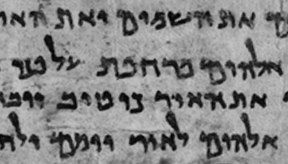 את השמים ואת האר
אלהים מרחפת על פני
את האור כי טוב ויבד
אלהים לאור יומם ולח